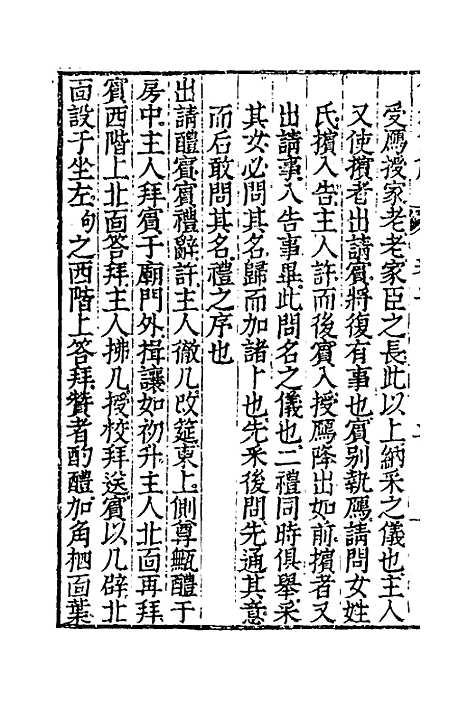 受鴈授家老老家臣之長此以上納采之儀也主人
又使擯者出請賓將復有事也賓別執鴈請問女姓
氏擯入告主人許而後賓入授鴈降出如前擯者又
出請事入告事畢此問名之儀也二禮同時俱舉采
其女必問其名歸而加諸卜也先采後問先通其意
而后敢問其名禮之序也
出請醴賓賓禮辭許主人徹几改筵東上側尊甒醴于
房中主人拜賓于廟門外揖讓如初升主人北面再拜
賓西階上北面答拜主人拂几授校拜送賓以几辟北
面設于坐左句之西階上答拜贊者酌醴加角柶面葉